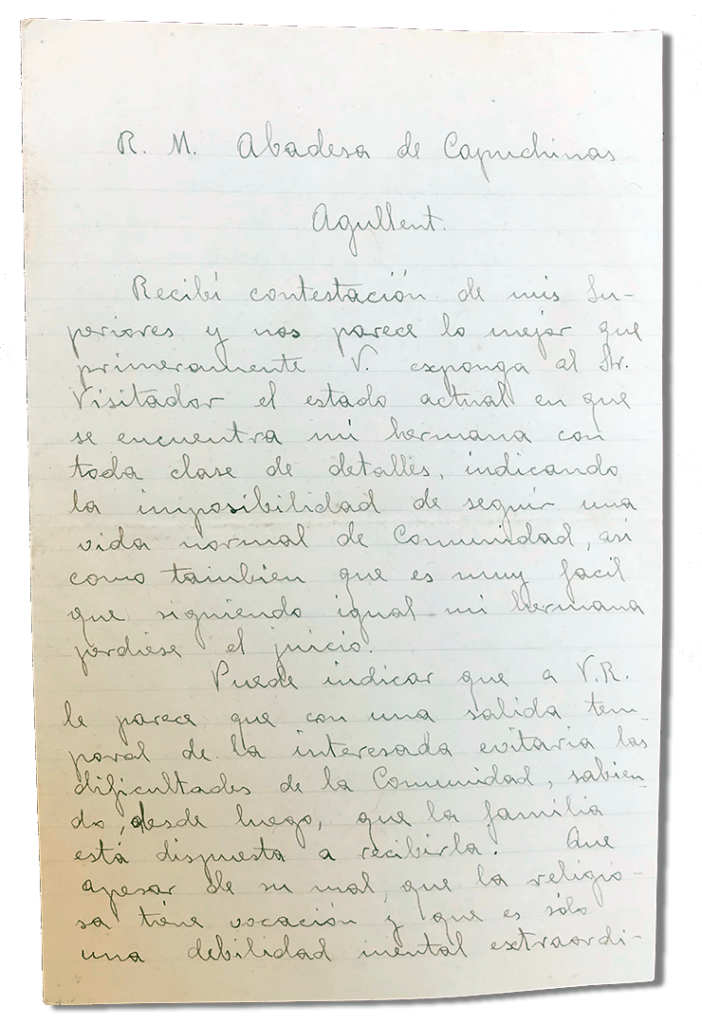 R. M. Abadesa de Capuchinas
Agullent.
Recibí contestación de mis Su-
periores y nos parece lo mejor que
primeramente V. exponga al Sr.
Visitador el estado actual en que
se encuentra mi hermana con
toda clase de detalles, indicando
la imposibilidad de seguir una
vida normal de Comunidad, así
como tambien que es muy facil
que siguiendo igual mi hermana
perdiese el juicio.
Puede indicar que a V.R.
le parece que con una salida tem-
poral de la interesada evitaria las
dificultades de la Comunidad, sabien-
do, desde luego, que la familia
está dispuesta a recibirla. Que
apesar de su mal, que la religio-
sa tiene vocación y que es sólo
una debilidad mental extraordi-